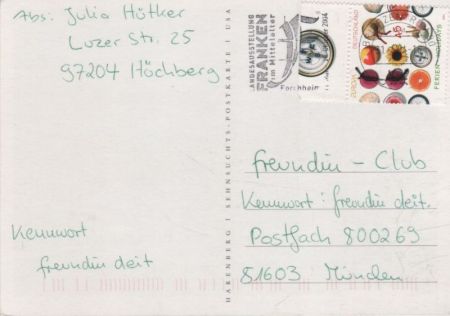 Abs: Julia Hötker
Luzer Str. 25
97204 Höchberg
LANDESAUSSTELLUNG
FRANKEN
im Mittelalter
Forchheim
2004
DEUTSCHLAND
45
EUROPA
FERIEN
HARENBERG SEHNSUCHTS-POSTKARTE USA
freundin - Club
Kennwort: freundin deit.
Postfach 800269
81603 München
Kennwort
freundin deit